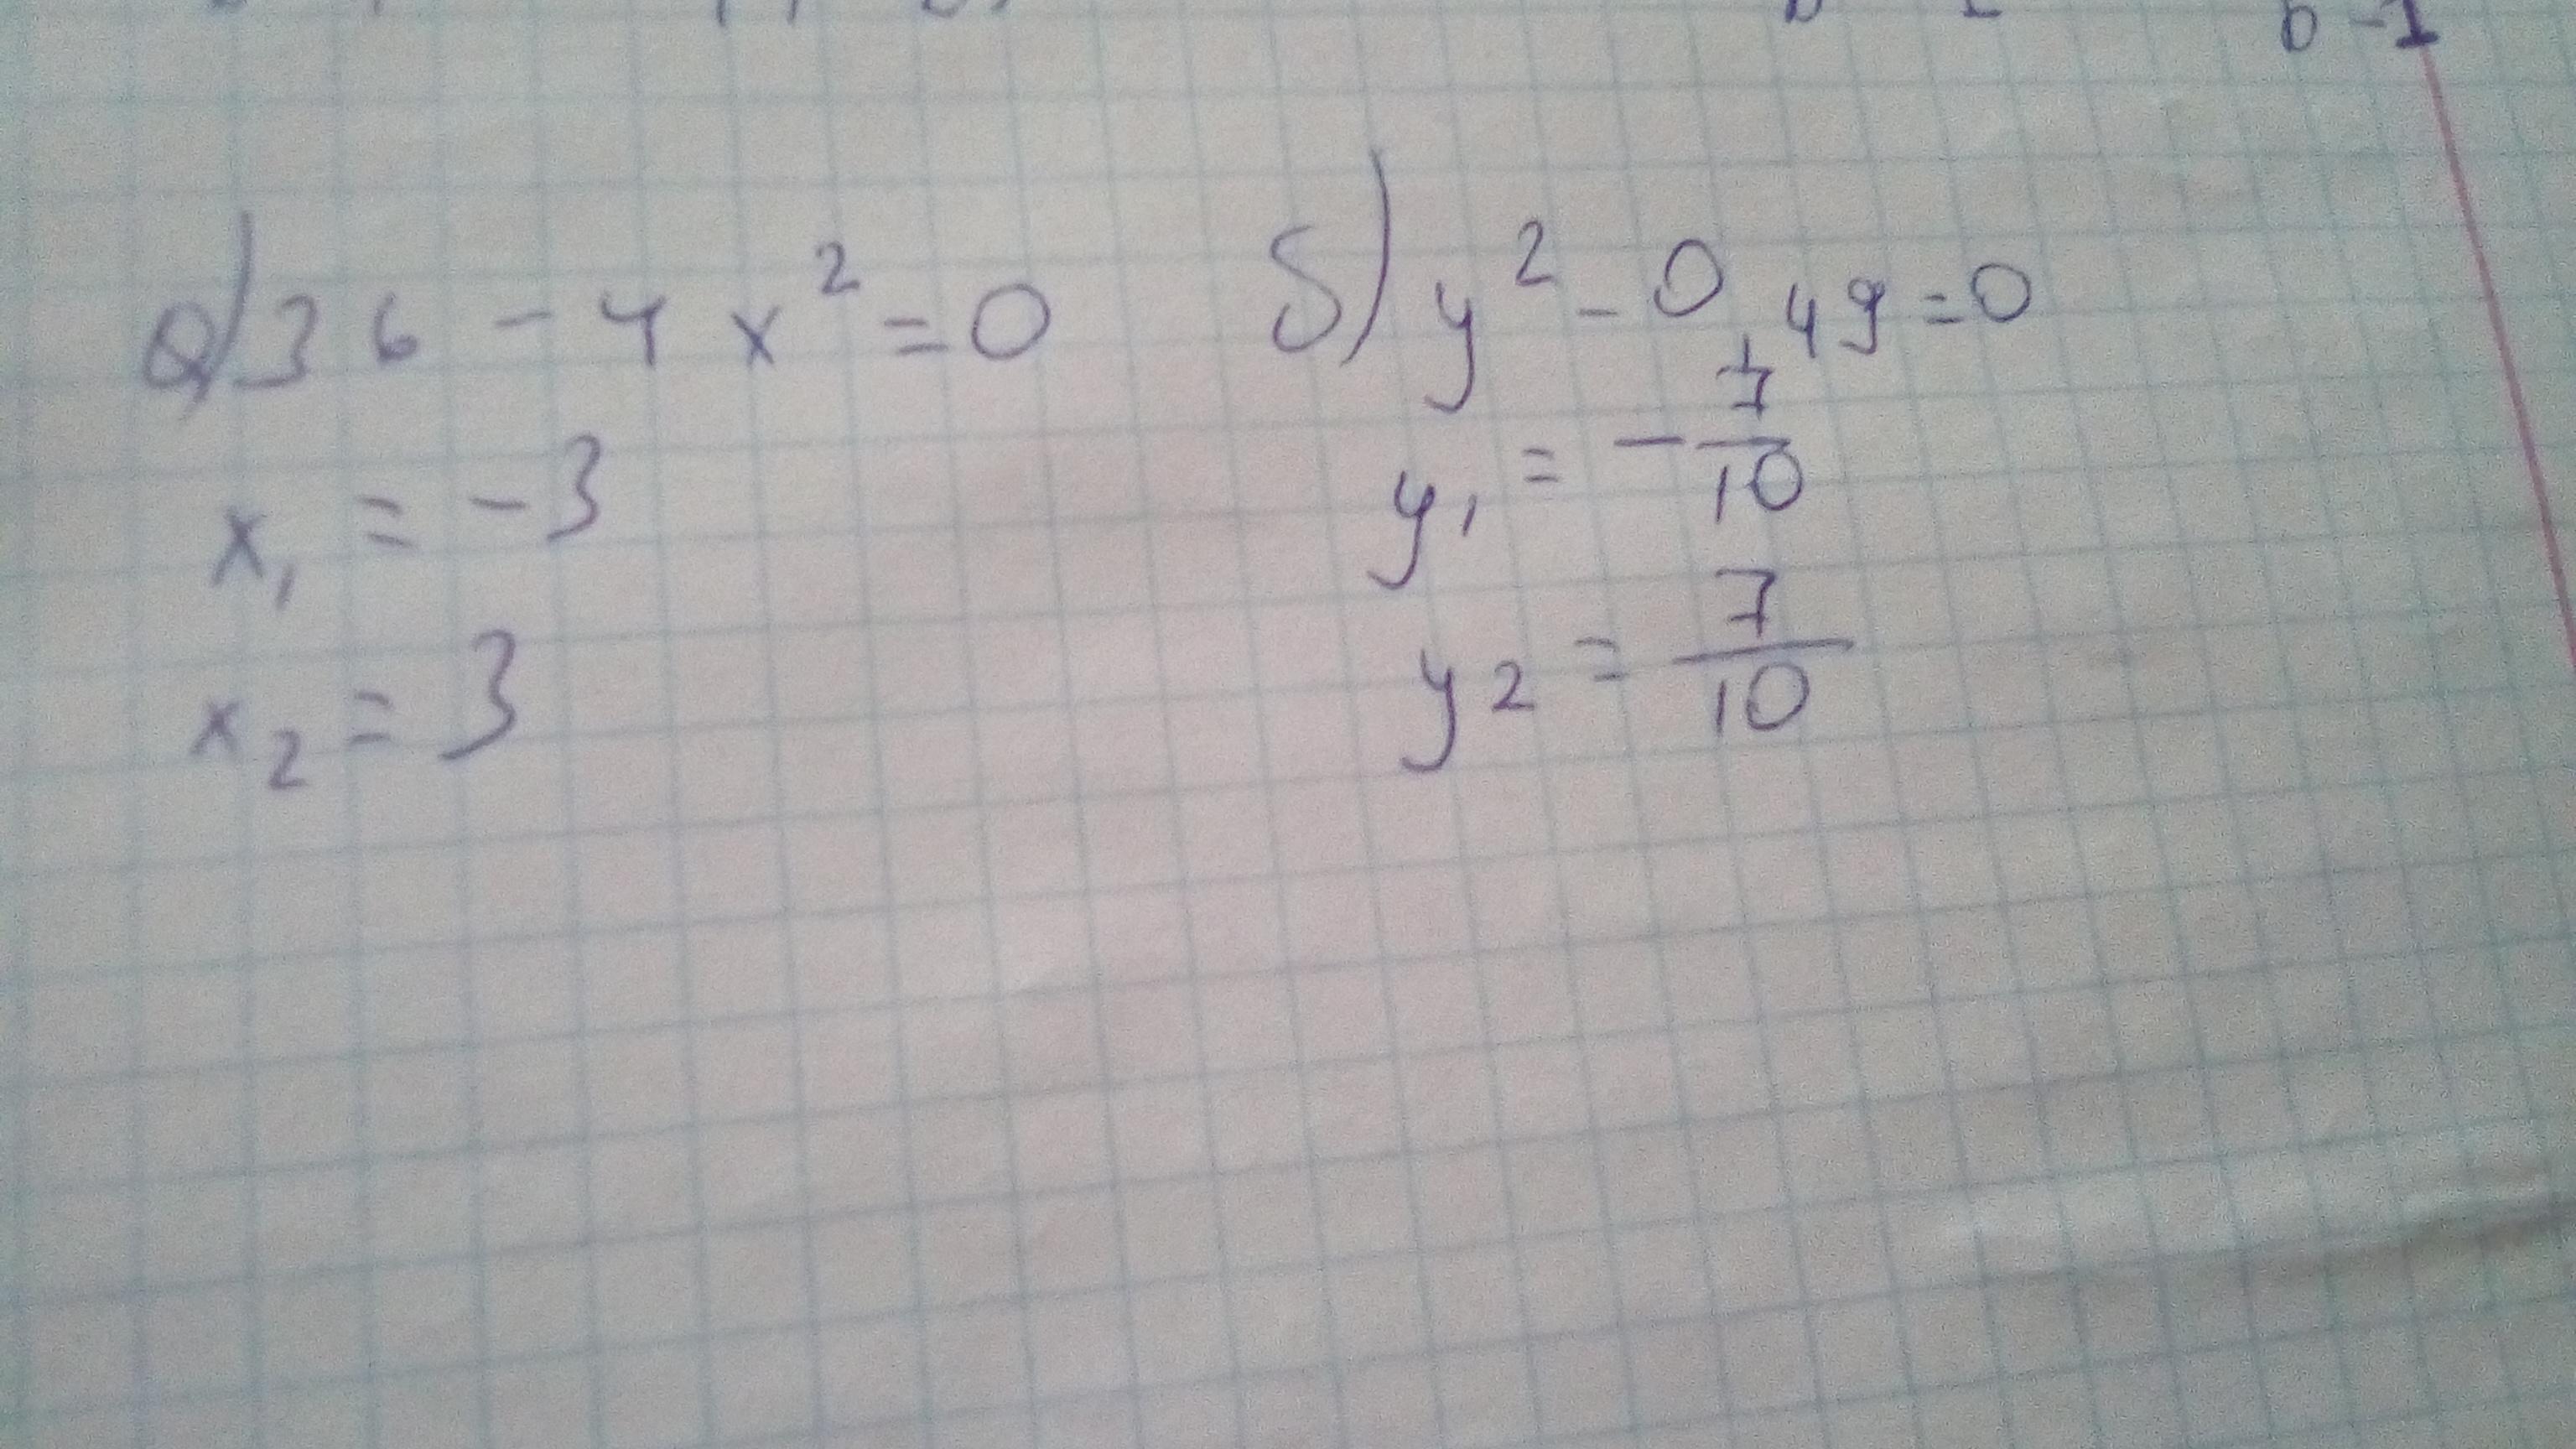 b-1
а) 36 - 4x² = 0
x₁ = -3
x₂ = 3
б) y² - 0,49 = 0
y₁ = -7/10
y₂ = 7/10